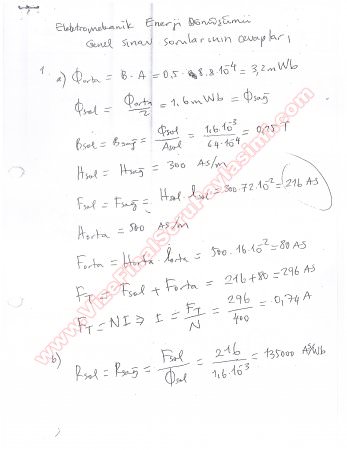 Elektromekanik Enerji Dönüşümü
Genel sınav sorularının cevapları
1. a) Φorta = B · A = 0,5 · 8.8·10⁻⁴ = 3,2 mWb
Φsol = Φorta / 2 = 1,6 mWb = Φsağ
Bsol = Bsağ = Φsol / Asol = 1,6·10⁻³ / 64·10⁻⁴ = 0,25 T
Hsol = Hsağ = 300 AS/m
Fsol = Fsağ = Hsol · lsol = 300·72·10⁻² = 216 AS
Horta = 500 AS/m
Forta = Horta · lorta = 500·16·10⁻² = 80 AS
FT = Fsol + Forta = 216 + 80 = 296 AS
FT = NI ⇒ I = FT / N = 296 / 400 = 0,74 A
b) Rsol = Rsağ = Fsol / Φsol = 216 / 1,6·10⁻³ = 135000 AS/Wb
www.VizeFinalSoruPaylasimi.com